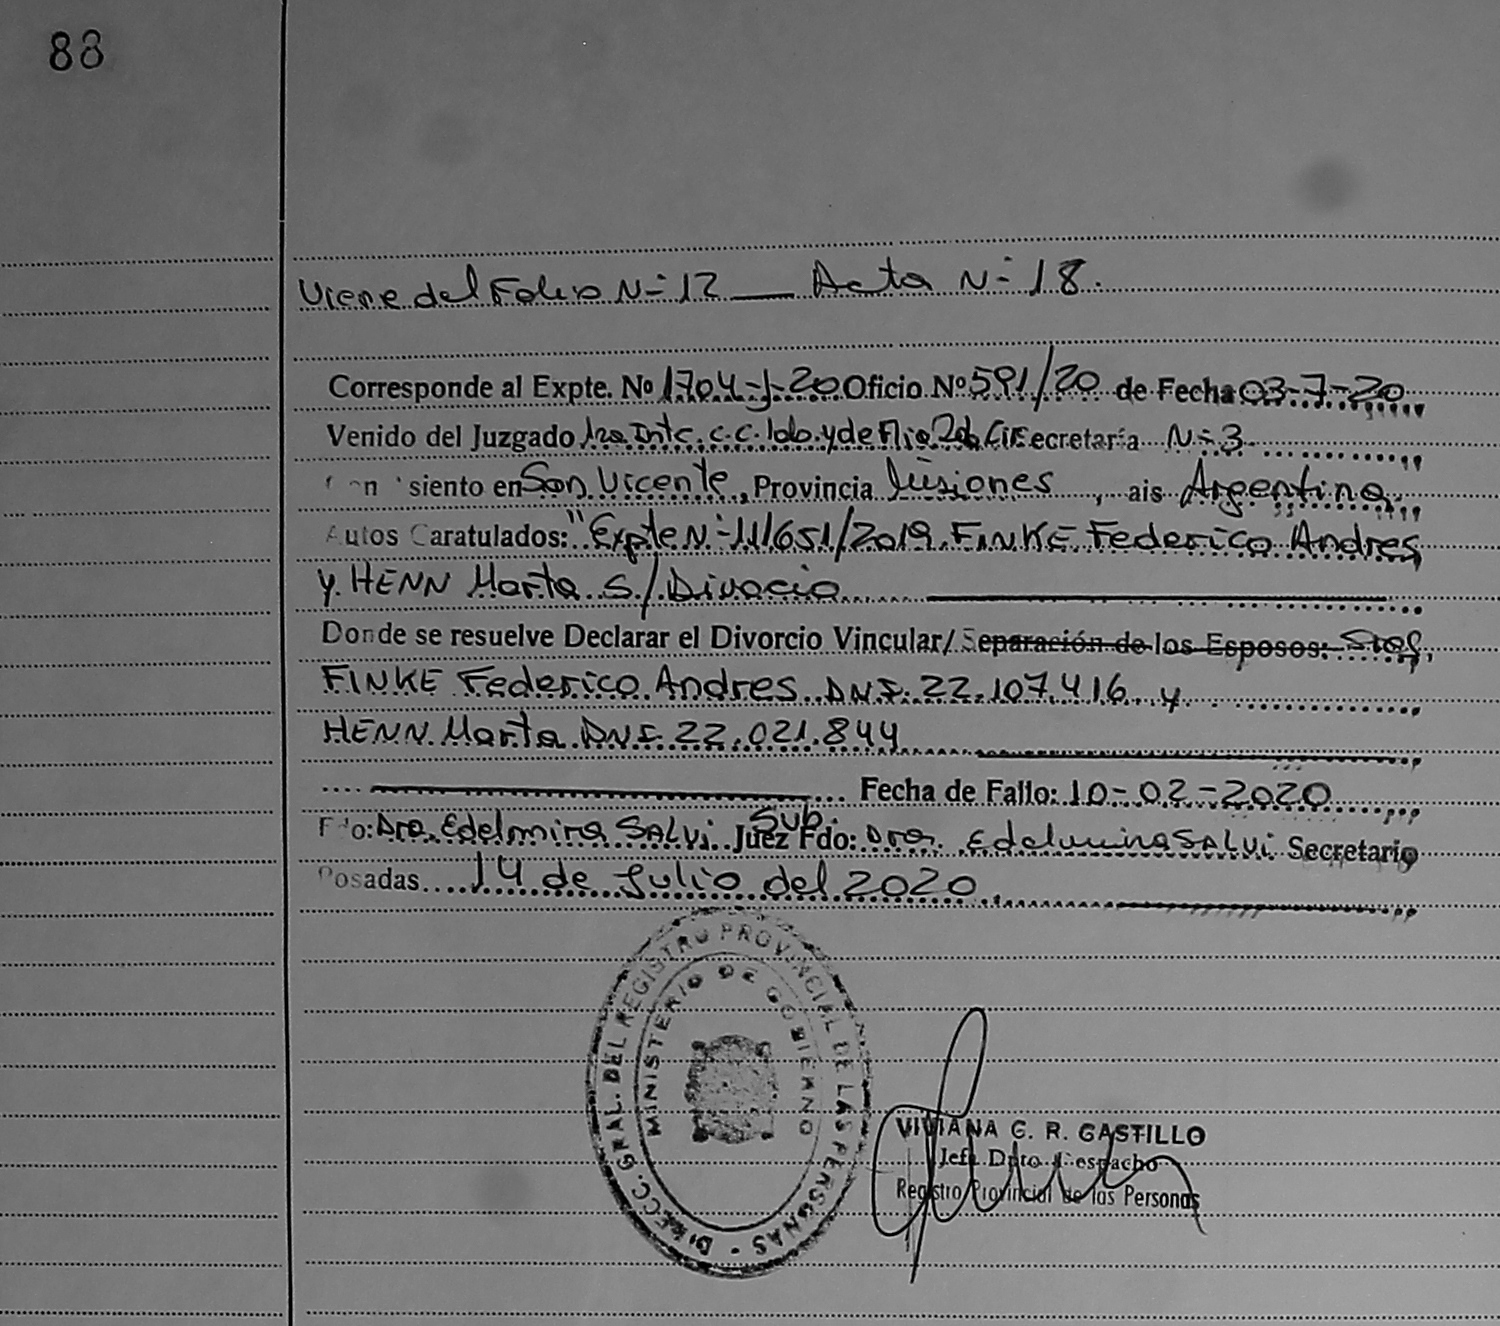 88
Viene del Folio N= 12 — Acta N= 18.
Corresponde al Expte. Nº 1704-J-20 Oficio Nº 591/20 de Fecha 03-7-20
Venido del Juzgado 1ra Intc. C.C. lab. y de Flia 2da Cir Secretaría N= 3
siento en San Vicente, Provincia Misiones, ais Argentina,
Autos Caratulados: "Expte N=111651/2019. FINKE Federico Andres
y. HENN Marta S/ Divocio
Donde se resuelve Declarar el Divorcio Vincular/ Separación de los Esposos: Sres,
FINKE Federico Andres DNI. 22.107.416 y
HENN Marta DNI. 22.021.844
Fecha de Fallo: 10-02-2020
Fdo: Dra. Edelmira SALVI Juez Sub. Fdo: Dra. Edelmira SALVI Secretario
Posadas 14 de Julio del 2020.
DIRECC. GRAL. DEL REGISTRO PROVINCIAL DE LAS PERSONAS
MINISTERIO DE GOBIERNO
VIVIANA G. R. CASTILLO
Jefa Dpto Despacho
Registro Provincial de las Personas